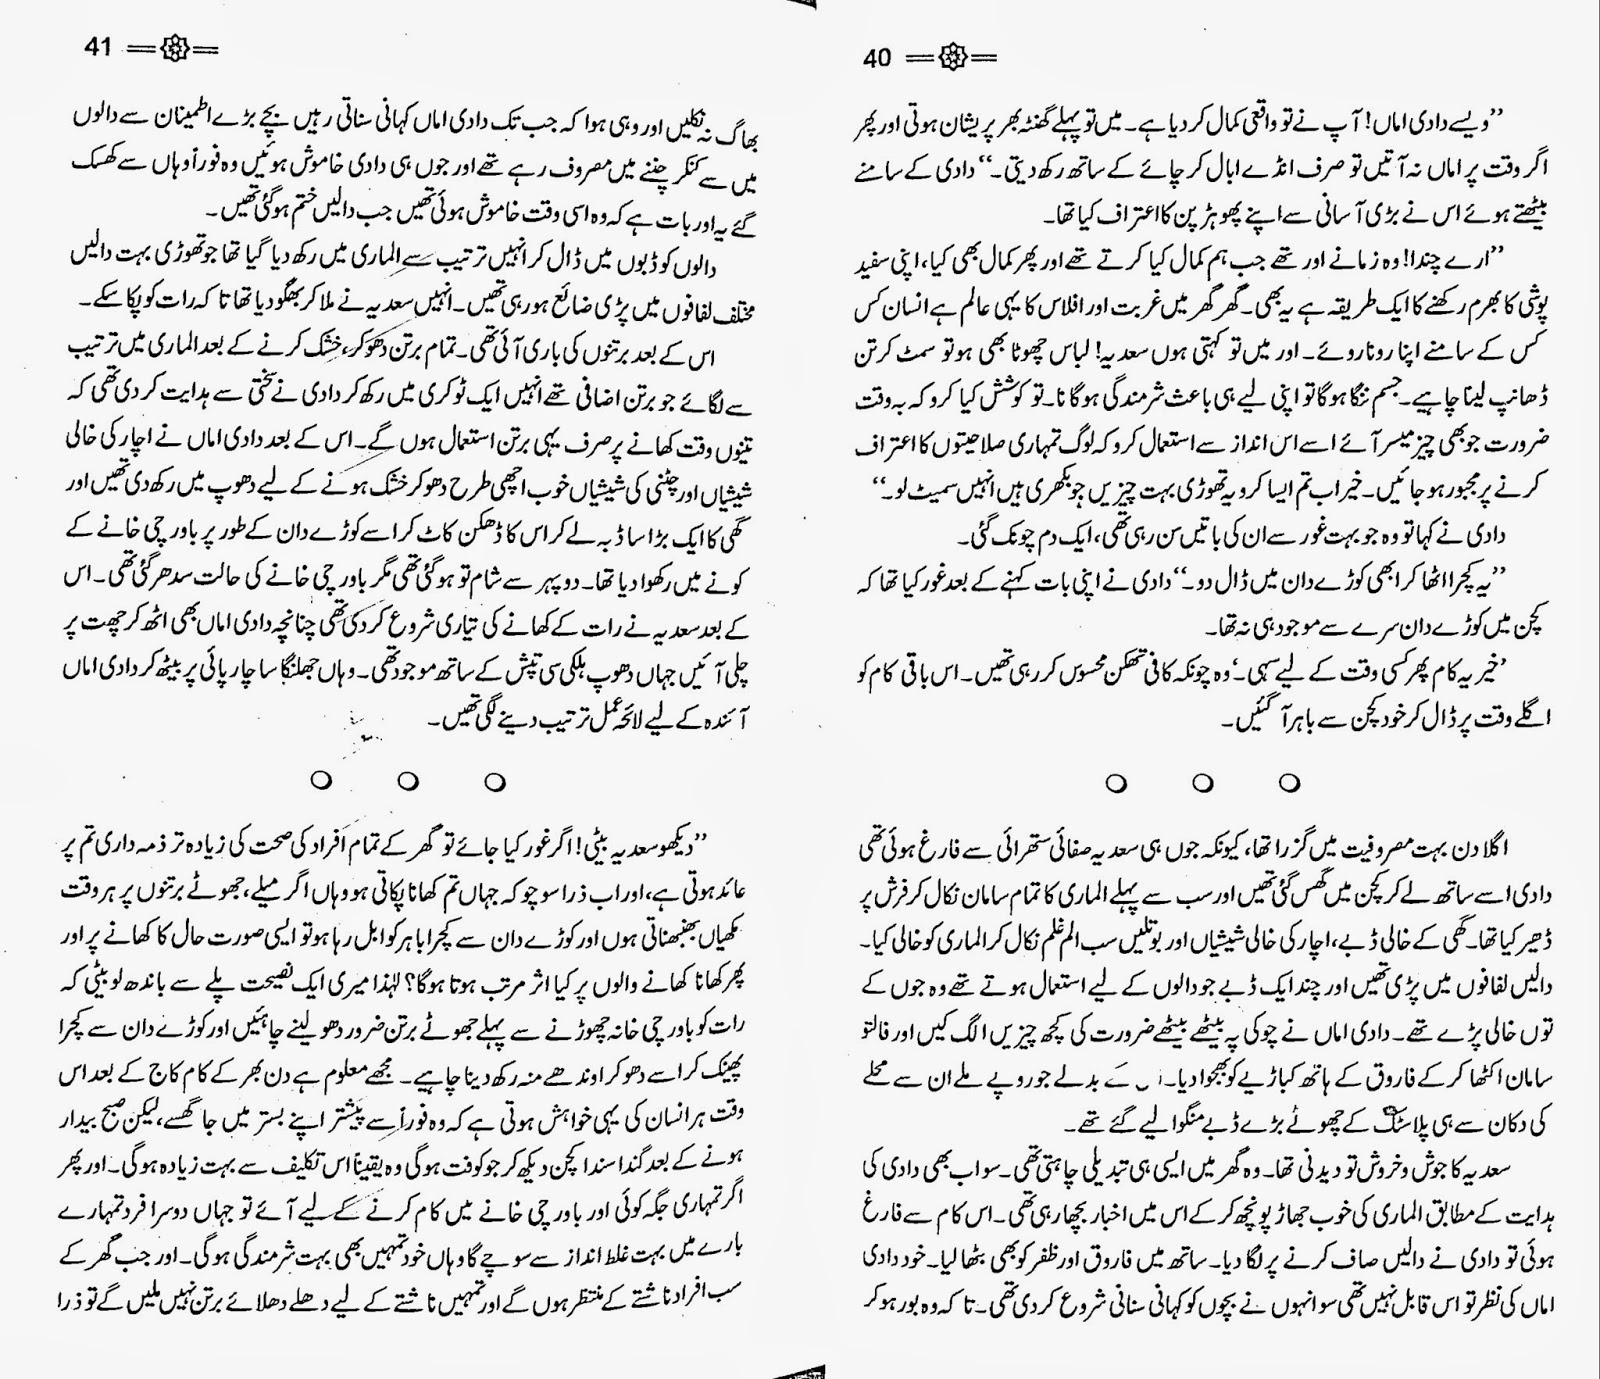 40
’’ویسے دادی اماں! آپ نے تو واقعی کمال کر دیا ہے۔ میں تو پہلے گھنٹہ بھر پریشان ہوتی اور پھر
اگر وقت پر اماں نہ آتیں تو صرف انڈے ابال کر چائے کے ساتھ رکھ دیتی۔‘‘ دادی کے سامنے
بیٹھتے ہوئے اس نے بڑی آسانی سے اپنے پھوہڑ پن کا اعتراف کیا تھا۔
’’ارے چندا! وہ زمانے اور تھے جب ہم کمال کیا کرتے تھے اور پھر کمال بھی کیا، اپنی سفید
پوشی کا بھرم رکھنے کا ایک طریقہ ہے یہ بھی۔ گھر گھر میں غربت اور افلاس کا یہی عالم ہے انسان کس
کس کے سامنے اپنا رونا روئے۔ اور میں تو کہتی ہوں سعدیہ! لباس چھوٹا بھی ہو تو سمٹ کر تن
ڈھانپ لینا چاہیے۔ جسم ننگا ہوگا تو اپنی لیے ہی باعث شرمندگی ہوگا نا۔ تو کوشش کیا کرو کہ بہ وقت
ضرورت جو بھی چیز میسر آئے اسے اس انداز سے استعمال کرو کہ لوگ تمہاری صلاحیتوں کا اعتراف
کرنے پر مجبور ہو جائیں۔ خیر اب تم ایسا کرو یہ تھوڑی بہت چیزیں جو بکھری ہیں انہیں سمیٹ لو۔‘‘
دادی نے کہا تو وہ جو بہت غور سے ان کی باتیں سن رہی تھی، ایک دم چونک گئی۔
’’یہ کچرا اٹھا کر ابھی کوڑے دان میں ڈال دو۔‘‘ دادی نے اپنی بات کہنے کے بعد غور کیا تھا کہ
کچن میں کوڑے دان سرے سے موجود ہی نہ تھا۔
’خیر یہ کام پھر کسی وقت کے لیے سہی۔‘ وہ چونکہ کافی تھکن محسوس کر رہی تھیں۔ اس باقی کام کو
اگلے وقت پر ڈال کر خود کچن سے باہر آ گئیں۔
اگلا دن بہت مصروفیت میں گزرا تھا، کیونکہ جوں ہی سعدیہ صفائی ستھرائی سے فارغ ہوئی تھی
دادی اسے ساتھ لے کر کچن میں گھس گئی تھیں اور سب سے پہلے الماری کا تمام سامان نکال کر فرش پر
ڈھیر کیا تھا۔ گھی کے خالی ڈبے، اچار کی خالی شیشیاں اور بوتلیں سب الم غلم نکال کر الماری کو خالی کیا۔
دالیں لفافوں میں پڑی تھیں اور چند ایک ڈبے جو دالوں کے لیے استعمال ہوتے تھے وہ جوں کے
توں خالی پڑے تھے۔ دادی اماں نے چوکی پہ بیٹھے بیٹھے ضرورت کی کچھ چیزیں الگ کیں اور فالتو
سامان اکٹھا کر کے فاروق کے ہاتھ کباڑیے کو بھجوا دیا۔ کے بدلے جو روپے ملے ان سے محلے
کی دکان سے ہی پلاسٹک کے چھوٹے بڑے ڈبے منگوا لیے گئے تھے۔
سعدیہ کا جوش و خروش تو دیدنی تھا۔ وہ گھر میں ایسی ہی تبدیلی چاہتی تھی۔ سو اب بھی دادی کی
ہدایت کے مطابق الماری کی خوب جھاڑ پونچھ کر کے اس میں اخبار بچھا رہی تھی۔ اس کام سے فارغ
ہوئی تو دادی نے دالیں صاف کرنے پر لگا دیا۔ ساتھ میں فاروق اور ظفر کو بھی بٹھا لیا۔ خود دادی
اماں کی نظر تو اس قابل نہیں تھی سو انہوں نے بچوں کو کہانی سنانی شروع کر دی تھی۔ تاکہ وہ بور ہو کر
41
بھاگ نہ نکلیں اور وہی ہوا کہ جب تک دادی اماں کہانی سناتی رہیں بچے بڑے اطمینان سے دالوں
میں سے کنکر چننے میں مصروف رہے تھے اور جوں ہی دادی خاموش ہوئیں وہ فوراً وہاں سے کھسک
گئے یہ اور بات ہے کہ وہ اسی وقت خاموش ہوئی تھیں جب دالیں ختم ہو گئی تھیں۔
دالوں کو ڈبوں میں ڈال کر انہیں ترتیب سے الماری میں رکھ دیا گیا تھا جو تھوڑی بہت دالیں
مختلف لفافوں میں پڑی ضائع ہو رہی تھیں۔ انہیں سعدیہ نے ملا کر بھگو دیا تھا تاکہ رات کو پکا سکے۔
اس کے بعد برتنوں کی باری آئی تھی۔ تمام برتن دھو کر، خشک کرنے کے بعد الماری میں ترتیب
سے لگائے جو برتن اضافی تھے انہیں ایک ٹوکری میں رکھ کر دادی نے سختی سے ہدایت کر دی تھی کہ
تینوں وقت کھانے پر صرف یہی برتن استعمال ہوں گے۔ اس کے بعد دادی اماں نے اچار کی خالی
شیشیاں اور چٹنی کی شیشیاں خوب اچھی طرح دھو کر خشک ہونے کے لیے دھوپ میں رکھ دی تھیں اور
گھی کا ایک بڑا سا ڈبہ لے کر اس کا ڈھکن کاٹ کر اسے کوڑے دان کے طور پر باورچی خانے کے
کونے میں رکھوا دیا تھا۔ دوپہر سے شام تو ہو گئی تھی مگر باورچی خانے کی حالت سدھر گئی تھی۔ اس
کے بعد سعدیہ نے رات کے کھانے کی تیاری شروع کر دی تھی چنانچہ دادی اماں بھی اٹھ کر چھت پر
چلی آئیں جہاں دھوپ ہلکی سی تپش کے ساتھ موجود تھی۔ وہاں جھلنگا سا چارپائی پر بیٹھ کر دادی اماں
آئندہ کے لیے لائحہ عمل ترتیب دینے لگی تھیں۔
’’دیکھو سعدیہ بیٹی! اگر غور کیا جائے تو گھر کے تمام افراد کی صحت کی زیادہ تر ذمہ داری تم پر
عائد ہوتی ہے، اور اب ذرا سوچو کہ جہاں تم کھانا پکاتی ہو وہاں اگر میلے، جھوٹے برتنوں پر ہر وقت
مکھیاں بھنبھناتی ہوں اور کوڑے دان سے کچرا باہر کو ابل رہا ہو تو ایسی صورت حال کا کھانے پر اور
پھر کھانا کھانے والوں پر کیا اثر مرتب ہوتا ہوگا؟ لہٰذا میری ایک نصیحت پلے سے باندھ لو بیٹی کہ
رات کو باورچی خانہ چھوڑنے سے پہلے جھوٹے برتن ضرور دھو لینے چاہئیں اور کوڑے دان سے کچرا
پھینک کر اسے دھو کر اوندھے منہ رکھ دینا چاہیے۔ مجھے معلوم ہے دن بھر کے کام کاج کے بعد اس
وقت ہر انسان کی یہی خواہش ہوتی ہے کہ وہ فوراً سے پیشتر اپنے بستر میں جا گھسے، لیکن صبح بیدار
ہونے کے بعد گندا سندا کچن دیکھ کر جو کوفت ہوگی وہ یقیناً اس تکلیف سے بہت زیادہ ہوگی۔ اور پھر
اگر تمہاری جگہ کوئی اور باورچی خانے میں کام کرنے کے لیے آئے تو جہاں دوسرا فرد تمہارے
بارے میں بہت غلط انداز سے سوچے گا وہاں خود تمہیں بھی بہت شرمندگی ہوگی۔ اور جب گھر کے
سب افراد ناشتے کے منتظر ہوں گے اور تمہیں ناشتے کے لیے دھلے دھلائے برتن نہیں ملیں گے تو ذرا